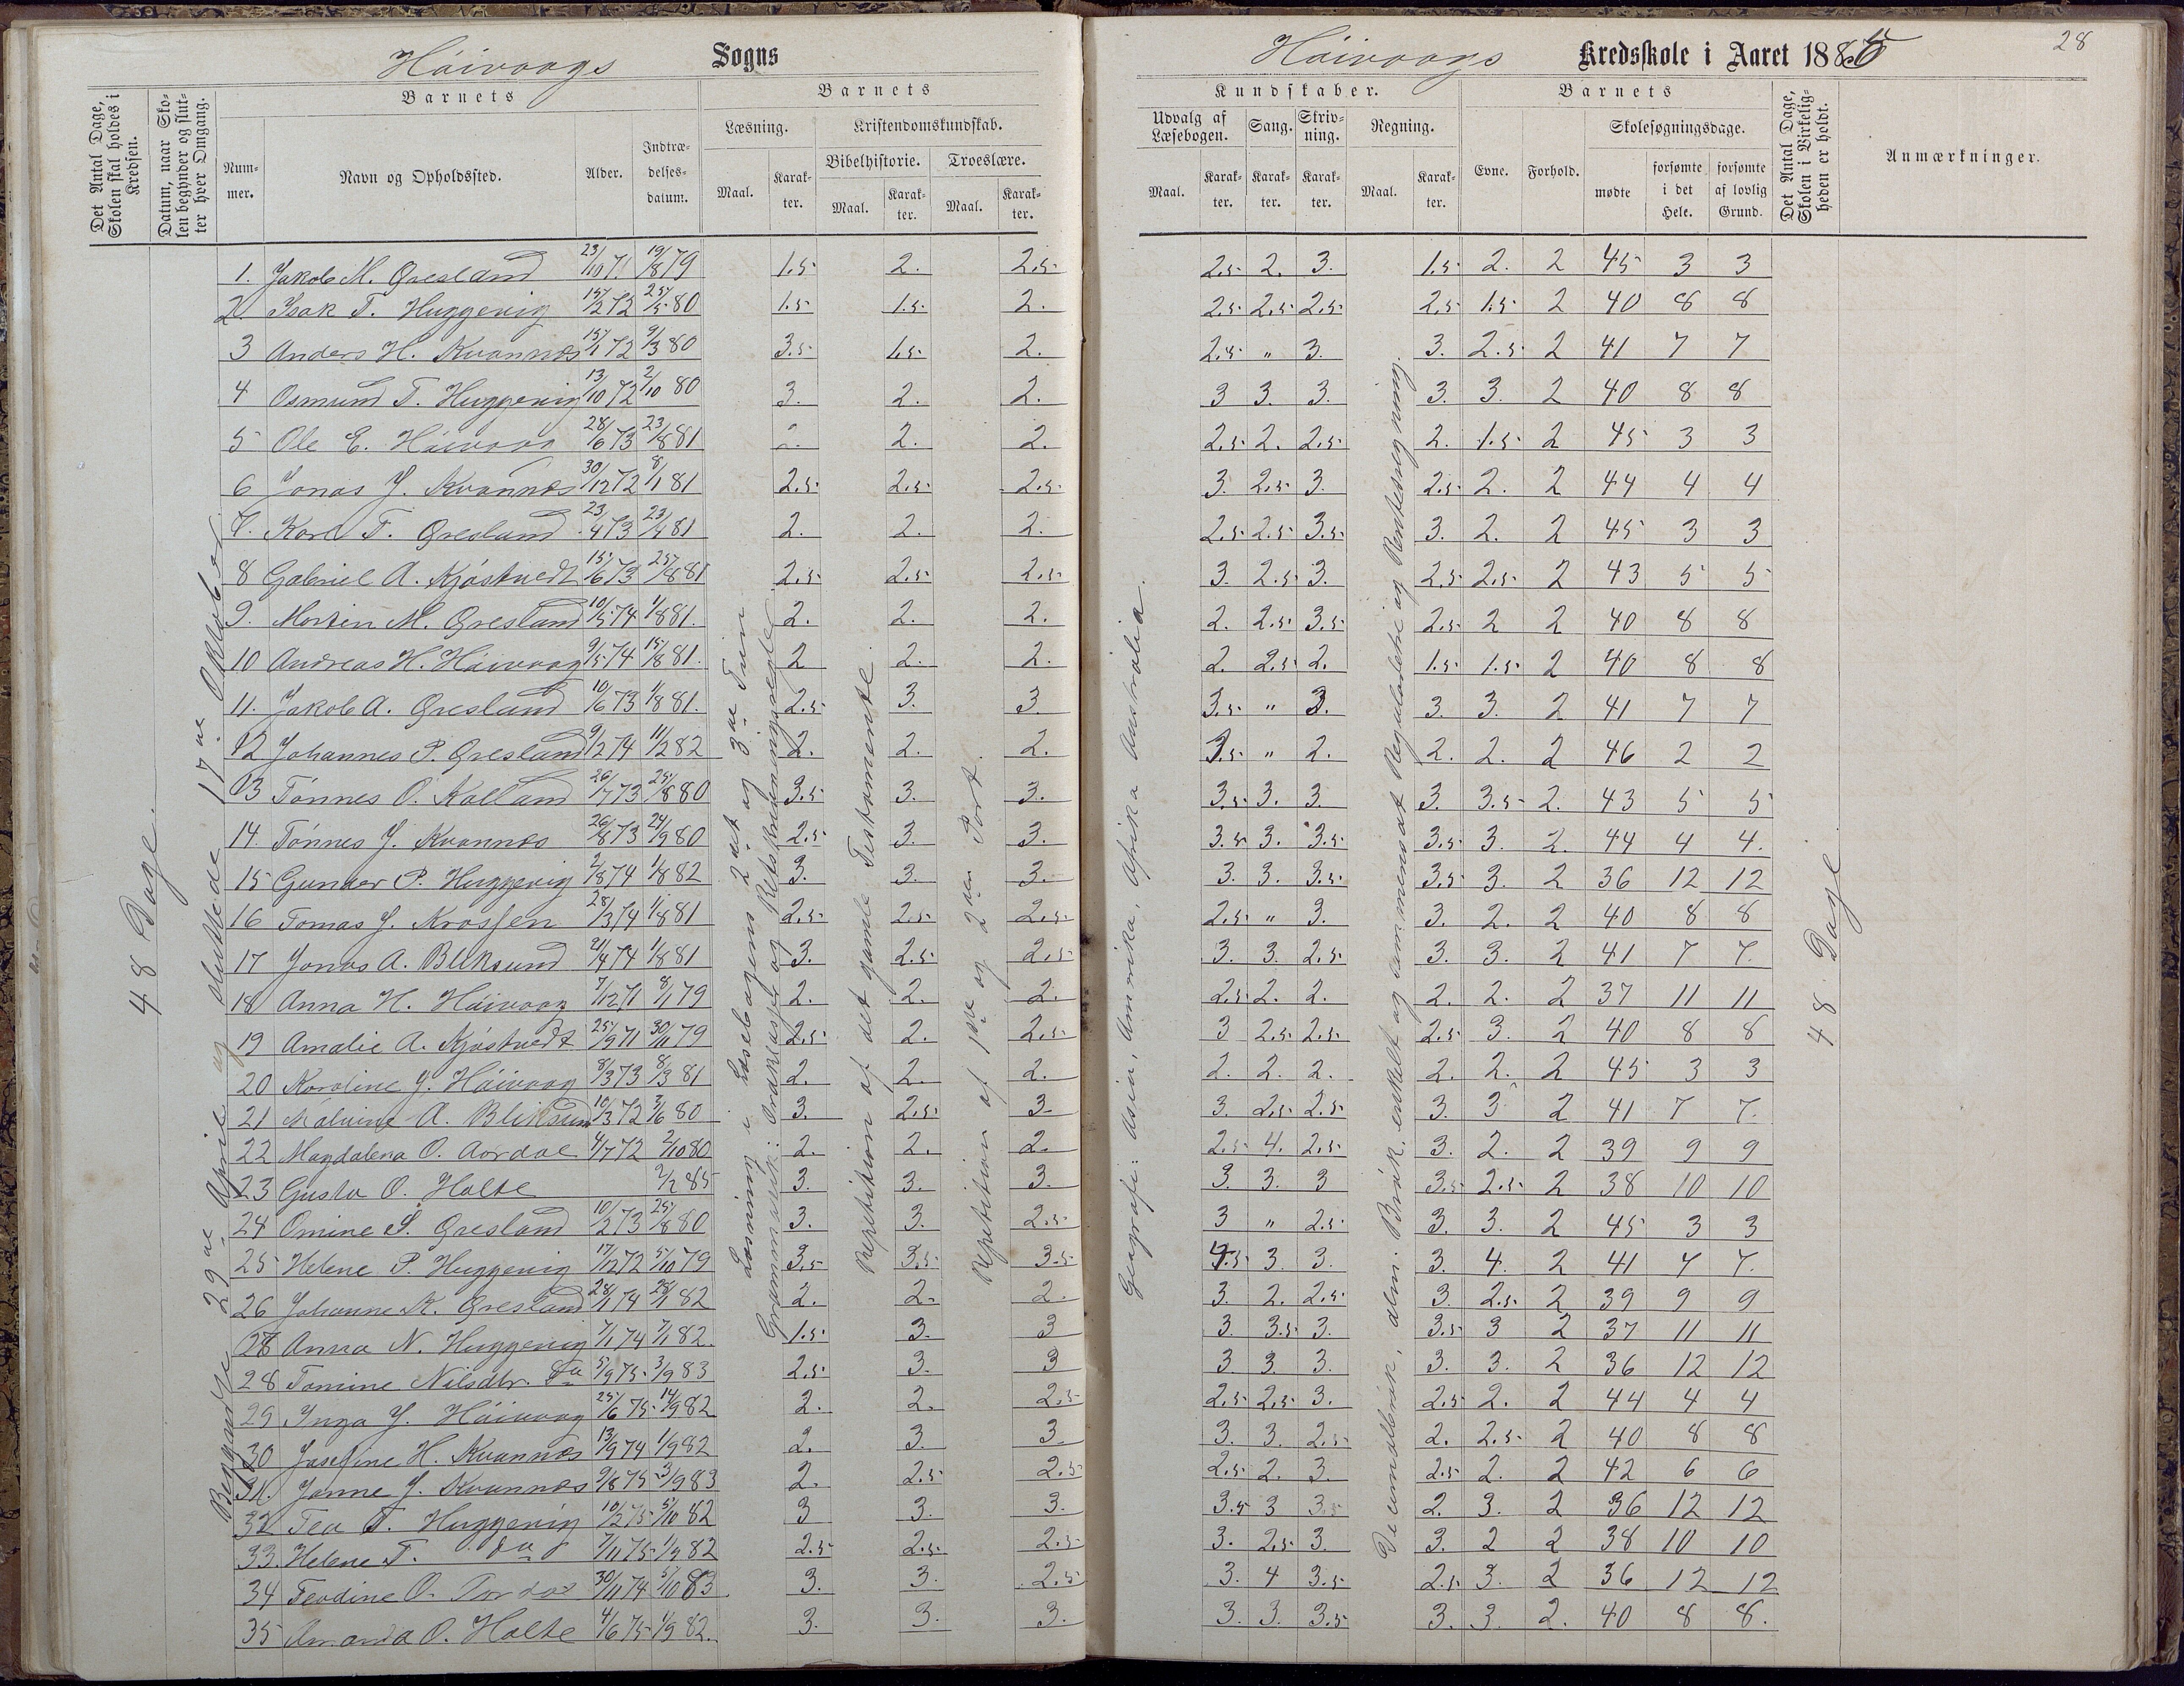 Háivaags Sogns
Háivaags Kredsskole i Aaret 1885
28
Det Antal Dage, Skolen skal holdes i Kredsen.
Datum, naar Skolen begynder og slutter hver Omgang.
Barnets
Nummer.
Navn og Opholdssted.
Alder.
Indtrædelsesdatum.
Barnets
Læsning.
Maal.
Karakter.
Kristendomskundskab.
Bibelhistorie.
Maal.
Karakter.
Troeslære.
Maal.
Karakter.
Kundskaber.
Udvalg af Læsebogen.
Maal.
Karakter.
Sang.
Karakter.
Skrivning.
Karakter.
Regning.
Maal.
Karakter.
Barnets
Evne.
Forhold.
Skolesøgningsdage.
mødte
forsømte i det Hele.
forsømte af lovlig Grund.
Det Antal Dage, Skolen i Virkeligheden er holdt.
Anmærkninger.
48 Dage.
Begyndte 29de April og sluttede 17de Oktober
Læsning i Læsebogens 2det og 3die Trin
Grammatik: Ordklasser og Retskrivningsregler
Repetition af det gamle Testamente.
Repetition af 1ste og 2den Part.
Geografi: Asia, Amerika, Afrika Australia.
Decimalbrøk, alm. Brøk, enkelt og sammensat Reguladetri og Rentesregning.
48 Dage
1. Jakob M. Gresland 23/10 71 19/8 79 1.5 2. 2.5 2.5 2. 3. 1.5 2. 2 45 3 3
2 Isak T. Huggenvig 15/2 72 25/5 80 1.5 1.5 2. 2.5 2.5 2.5 2.5 1.5 2 40 8 8
3 Anders H. Kvannes 15/1 72 9/3 80 3.5 1.5 2. 2.5 " 3. 3. 2.5 2 41 7 7
4 Osmund T. Huggenvig 13/10 72 2/10 80 3. 2. 2. 3 3. 3. 3. 3. 2 40 8 8
5 Ole E. Háivaag 28/6 73 23/8 81 2. 2. 2. 2.5 2. 2.5 2. 1.5 2 45 3 3
6 Jonas J. Kvannes 30/12 72 8/1 81 2.5 2.5 2.5 3. 2.5 3. 2.5 2. 2 44 4 4
7. Karl T. Gresland 23/4 73 23/4 81 2. 2. 2. 2.5 2.5 3.5 3. 2. 2 45 3 3
8 Gabriel A. Kjóstvedt 15/6 73 25/8 81 2.5 2.5 2.5 3. 2.5 3. 2.5 2.5 2 43 5 5
9. Morten M. Gresland 10/5 74 1/8 81. 2. 2. 2. 2. 2.5 3.5 2.5 2 2 40 8 8
10 Andreas H. Háivaag 9/5 74 15/8 81. 2 2. 2. 2. 2.5 2. 1.5 1.5 2 40 8 8
11. Jakob A. Gresland 10/6 73 1/8 81. 2.5 3. 3. 3.5 " 3. 3. 3. 2 41 7 7
12 Johannes P. Gresland 9/2 74 11/2 82 2. 2. 2. 3.5 " 2. 2. 2. 2 46 2 2
13 Tónnes O. Kalland 26/7 73 25/8 80 3.5 3. 3. 3.5 3. 3. 3. 3.5 2. 43 5 5
14. Tónnes J. Kvannes 26/8 73 24/9 80 2.5 3. 3. 3.5 3. 3.5 3.5 3. 2. 44 4 4.
15 Gunder P. Huggenvig 2/8 74 1/8 82 3. 3. 3. 3. 3. 3.5 3.5 3. 2 36 12 12
16 Tomas J. Krossen 28/3 74 1/8 81 2.5 2.5 2.5 2.5 " 3. 3. 2. 2 40 8 8
17 Jonas A. Bliksund 21/4 74 1/8 81 3. 2.5 2.5 3. 3. 2.5 3. 3. 2 41 7 7.
18 Anna H. Háivaag 7/12 71 8/1 79 2. 2. 2. 2.5 2. 2. 2. 2. 2 37 11 11
19 Amalie A. Kjóstvedt 25/9 71 30/11 79 2.5 2. 2.5 3 2.5 2.5 2.5 3. 2 40 8 8
20 Karoline J. Háivaag 8/3 73 8/3 81 2. 2. 2. 2. 2. 2. 2. 2. 2 45 3 3
21 Malvine A. Bliksund 10/3 72 3/6 80 3. 2.5 3 3. 2.5 2.5 3. 3 2 41 7 7.
22 Magdalena O. Aardal 4/7 72 2/10 80 2. 2. 2. 2.5 4. 2.5 3. 2. 2 39 9 9
23 Gusta O. Holte 2/2 85 3. 3. 3. 3. 3. 3 3.5 2.5 2 38 10 10
24 Omine S. Gresland 10/2 73 25/8 80 3. 3. 2.5 3 " 2.5 3. 3. 2 45 3 3
25 Helene P. Huggenvig 17/12 72 5/10 79 3.5 3.5 3.5 4.5 3 3. 3. 4. 2 41 7 7.
26 Johanne K. Gresland 28/1 74 28/1 82 2. 2. 2. 3. 2. 2.5 3. 2.5 2 39 9 9
28 Anna N. Huggenvig 7/1 74 7/1 82. 1.5 3. 3 3. 3.5 3. 3.5 3 2 37 11 11
28 Tomine Nilsdtr. Do 5/9 75 3/9 83 2.5 3. 3 3 3. 3. 3. 3. 2 36 12 12
29 Inga J. Háivaag 25/6 75 14/9 82 2. 2. 2.5 2.5 2.5 3. 2.5 2. 2 44 4 4
30 Josefine H. Kvannes 13/9 74 1/9 82 2. 3. 3. 3. 3. 2.5 2. 2.5 2 40 8 8
31. Janne J. Kvannes 9/8 75 3/9 83 2. 2.5 2.5 2.5 2. 3. 2.5 2. 2 42 6 6
32 Tea T. Huggenvig 10/2 75 5/10 82 3 3. 3. 3.5 3 3.5 2. 3. 2 36 12 12
33. Helene T. do 7/11 75 1/9 82 2.5 2.5 2.5 3. 2.5 3. 3. 2 2 38 10 10
34 Teodine O. 30/11 74 5/10 83 3. 3. 2.5 3. 4 3.5 2.5 3. 2 36 12 12
35 Amanda O. Holte 4/6 75 1/9 82. 3. 3. 3. 3. 3. 3.5 3. 3. 2. 40 8 8.